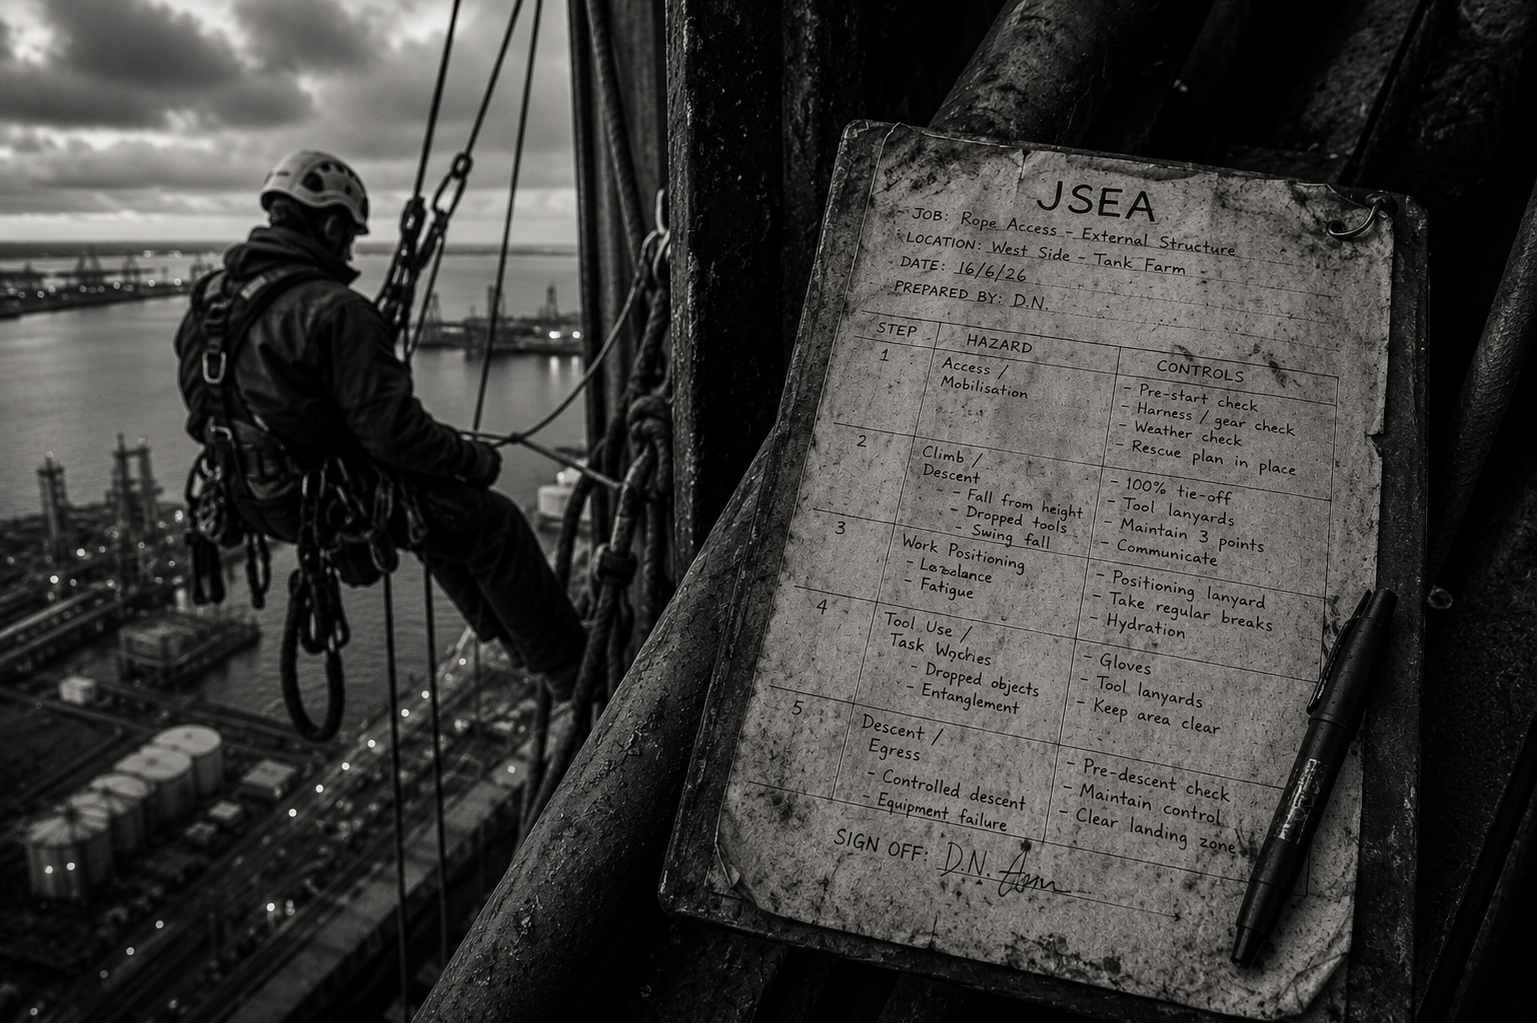 JSEA
JOB: Rope Access - External Structure
LOCATION: West Side - Tank Farm
DATE: 16/6/26
PREPARED BY: D.N.
STEP
HAZARD
CONTROLS
1
Access /
Mobilisation
- Pre-start check
- Harness / gear check
- Weather check
- Rescue plan in place
2
Climb /
Descent
- Fall from height
- Dropped tools
- Swing fall
- 100% tie-off
- Tool lanyards
- Maintain 3 points
- Communicate
3
Work Positioning
- Fatigue
- Positioning lanyard
- Take regular breaks
- Hydration
4
Tool Use /
Task
- Dropped objects
- Entanglement
- Gloves
- Tool lanyards
- Keep area clear
5
Descent /
Egress
- Controlled descent
- Equipment failure
- Pre-descent check
- Maintain control
- Clear landing zone
SIGN OFF: D.N.